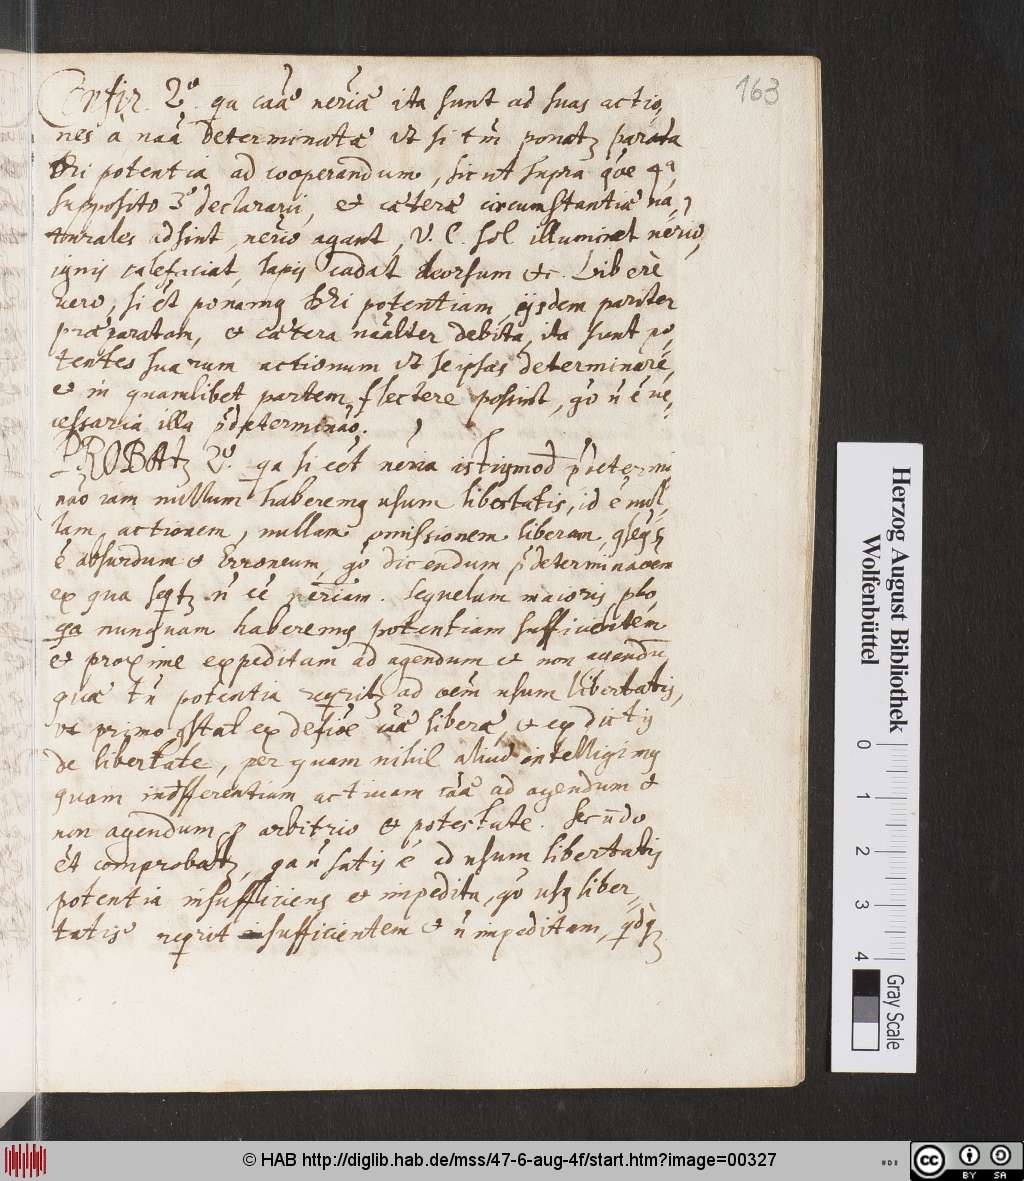 163
Cõfir. 2º. qa caũ neriæ ita sunt ad suas actio,
nes a naã determinatæ ut si tm̃ ponatꝫ parata
Dei potentia ad cooperandum, sicut supra qõe 4ª,
supposito 3º declaravi, et cæteræ circumstantiæ na,
turales adsint, nerio agant, V. C. sol illuminet nerio,
ignis calefaciat, lapis cadat deorsum etc. Liberè
vero, si et̃ ponamꝰ Dei potentiam, ijsdem pariter
præparatam, et cætera naãlter debita, ita sunt po,
tentes suarum actionum ut seipsas determinare,
et in quamlibet partem flectere possint, go ñ ẽ ne,
cessaria illa p̃determinaõ.
PROBAtꝫ 2º. qa si eẽt neria istiꝰmod p̃determi
naõ iam nullum haberemꝰ usum libertatis, id ẽ nul,
lam actionem, nullam omissionem liberam,
ẽ absurdum et Erroneum, go dicendum p̃determinaõem
ex qua seqtꝫ ñ eẽ neriam. Sequelam maioris pbo,
qa nunquam haberemꝰ potentiam sufficientem
et proxime expeditam ad agendum et non agendũ
quæ tñ potentia reqritꝫ ad oem̃ usum libertatis,
ut primo gstat ex defiõe caæ liberæ, et ex dictis
de libertate, per quam nihil aliud intelligimꝰ
quam indifferentiam activam caæ ad agendum et
non agendum p arbitrio et potestate. Secũdo
et̃ comprobatꝫ, qa ñ satis ẽ ad usum libertatis
potentia insufficiens et impedita, go usꝰ liber,
tatis reqrit sufficientem et ñ impeditam,
Herzog August Bibliothek
Wolfenbüttel
0 1 2 3 4
Gray Scale
© HAB http://diglib.hab.de/mss/47-6-aug-4f/start.htm?image=00327
cc BY SA